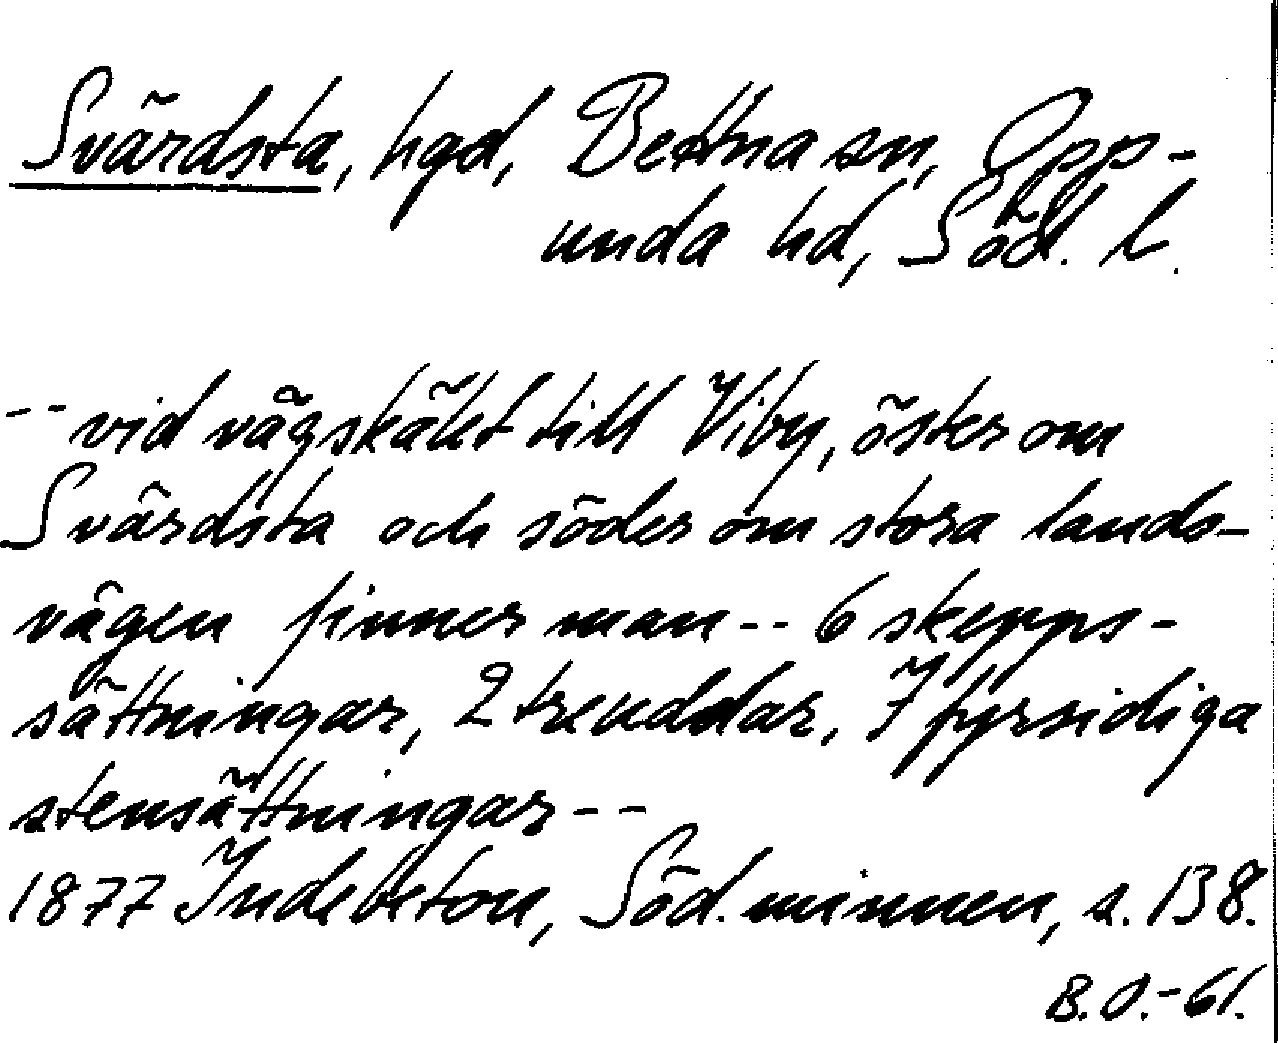 Svärdsta, hgd, Bettna sn, Opp-
unda hd, Söd. l.
-- vid vägskälet till Viby, öster om
Svärdsta och söder om stora lands-
vägen finner man -- 6 skepps-
sättningar, 2 treuddar, 7 fyrsidiga
stensättningar --
1877 Indebetou, Söd. minnen, s. 138.
B.O.-61.